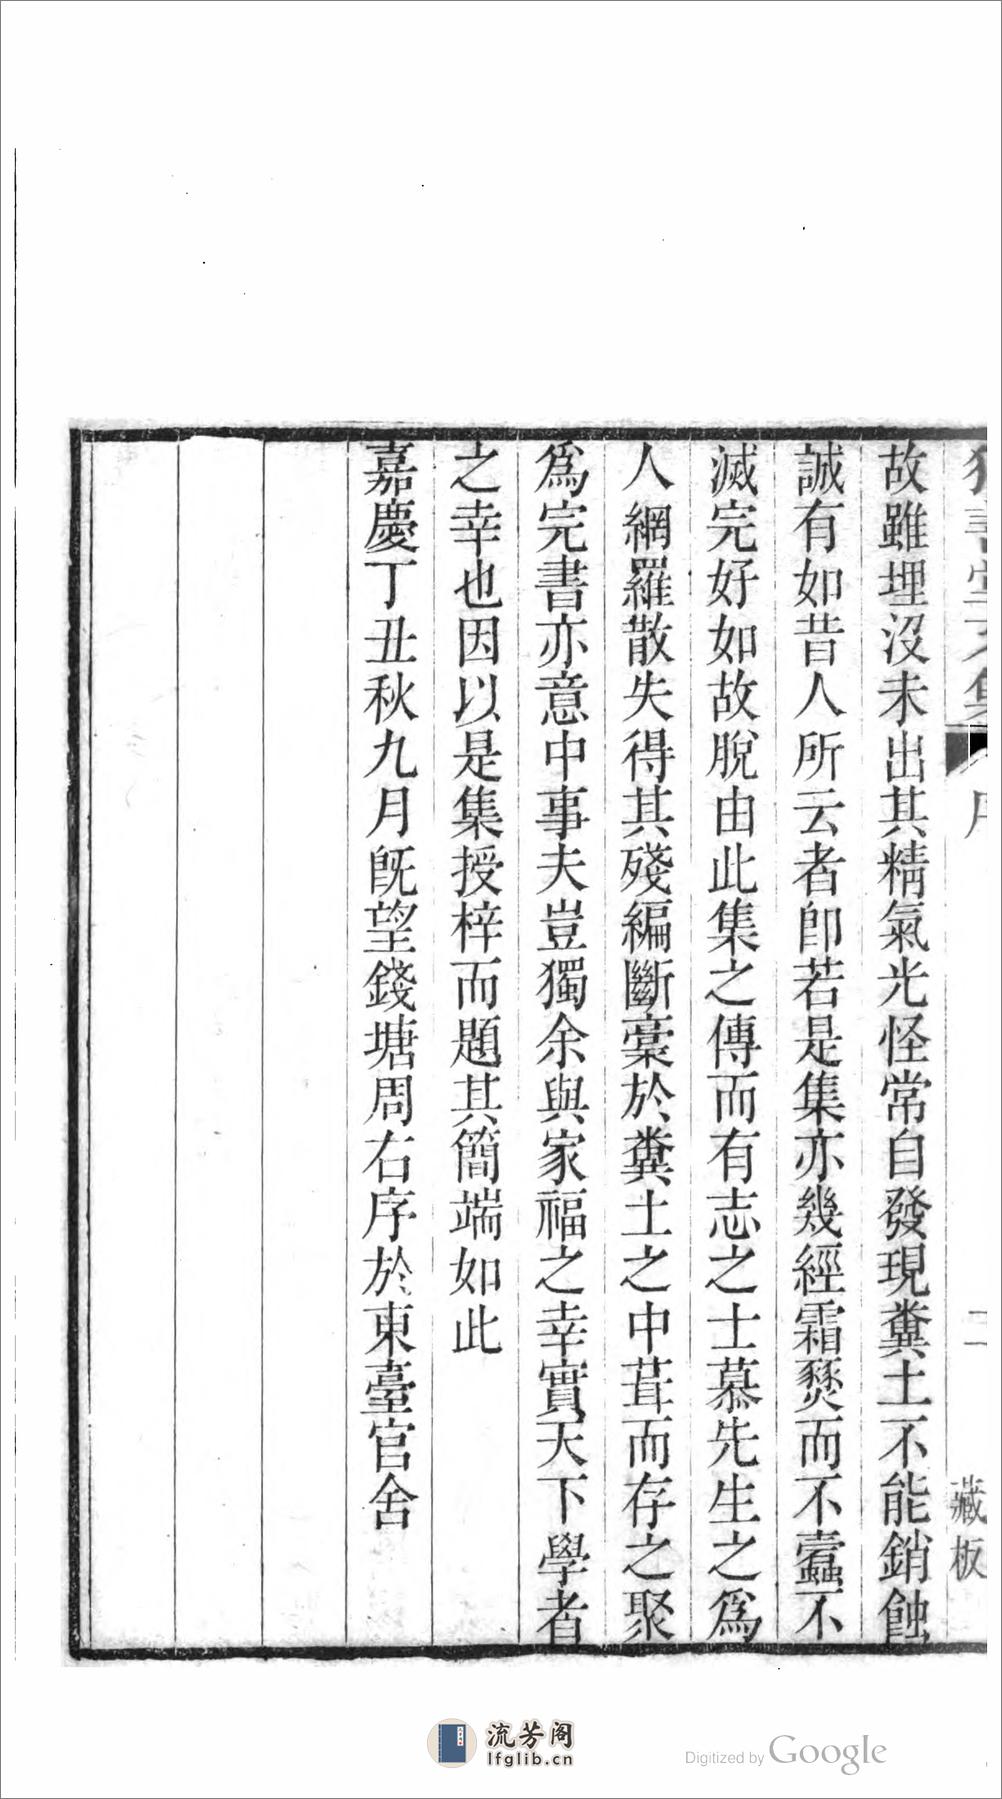 書堂文集
序
二
藏板
故雖埋沒未出其精氣光怪常自發現糞土不能銷蝕
誠有如昔人所云者卽若是集亦幾經霜燹而不蠹不
滅完好如故脫由此集之傳而有志之士慕先生之爲
人網羅散失得其殘編斷稾於糞土之中葺而存之聚
爲完書亦意中事夫豈獨余與家福之幸實天下學者
之幸也因以是集授梓而題其簡端如此
嘉慶丁丑秋九月旣望錢塘周右序於東臺官舍
流芳阁
lfglib.cn
Digitized by Google